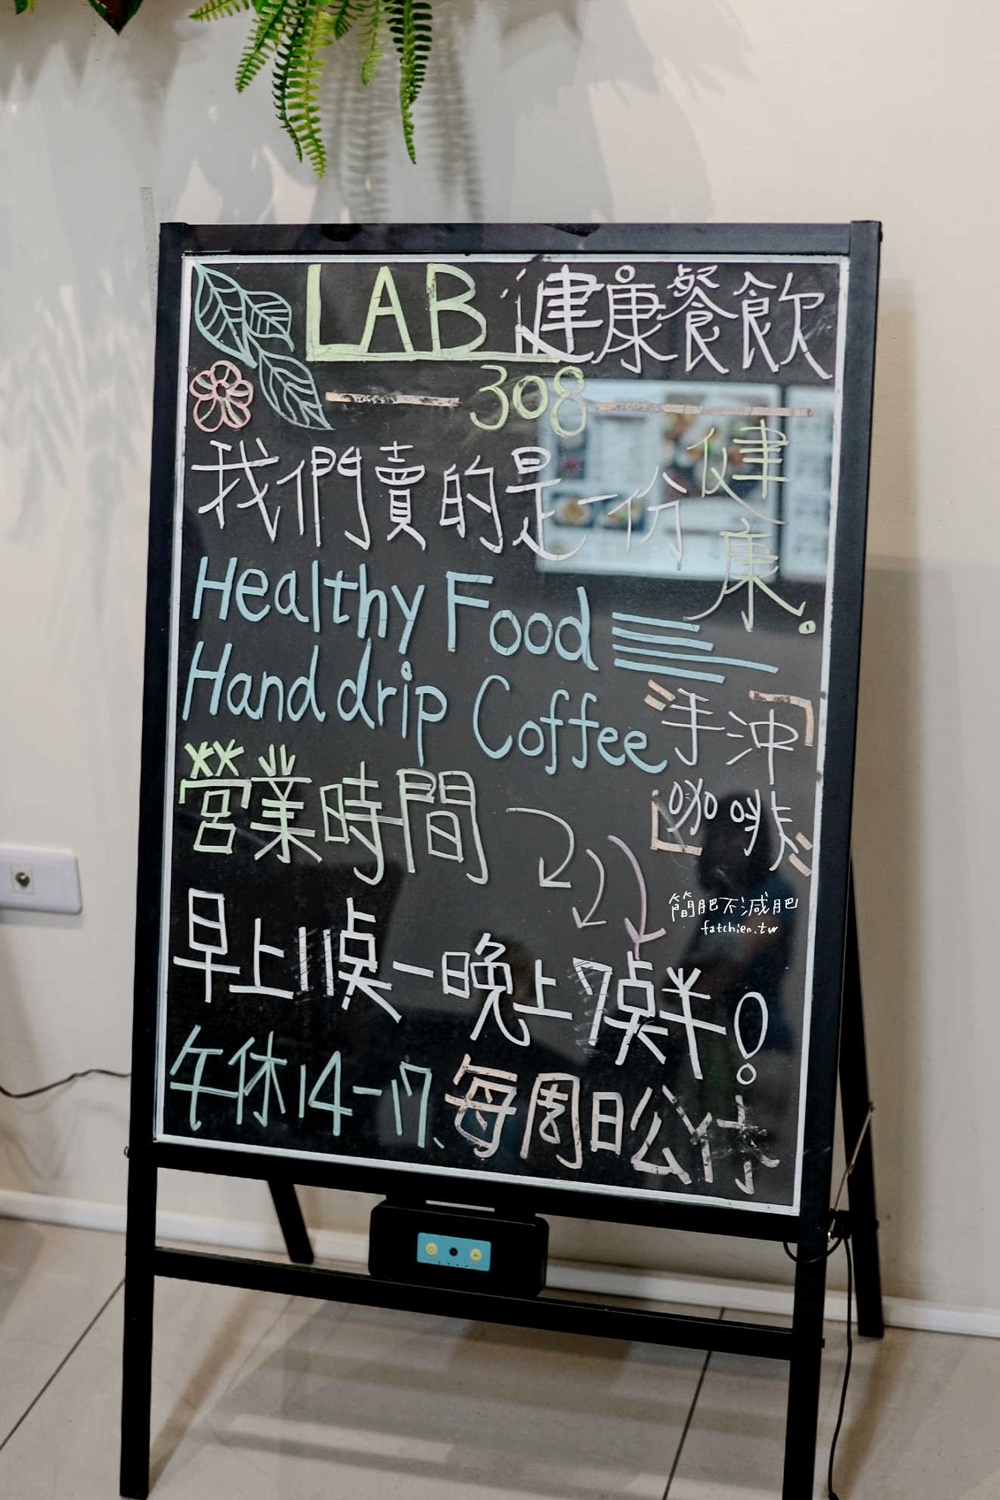 LAB 健康餐飲
308
我們賣的是一份健康。
Healthy Food
Hand drip Coffee
手沖
咖啡
營業時間
早上11點-晚上7點半!
午休14-17、每周日公休
簡肥不減肥
fatchien.tw